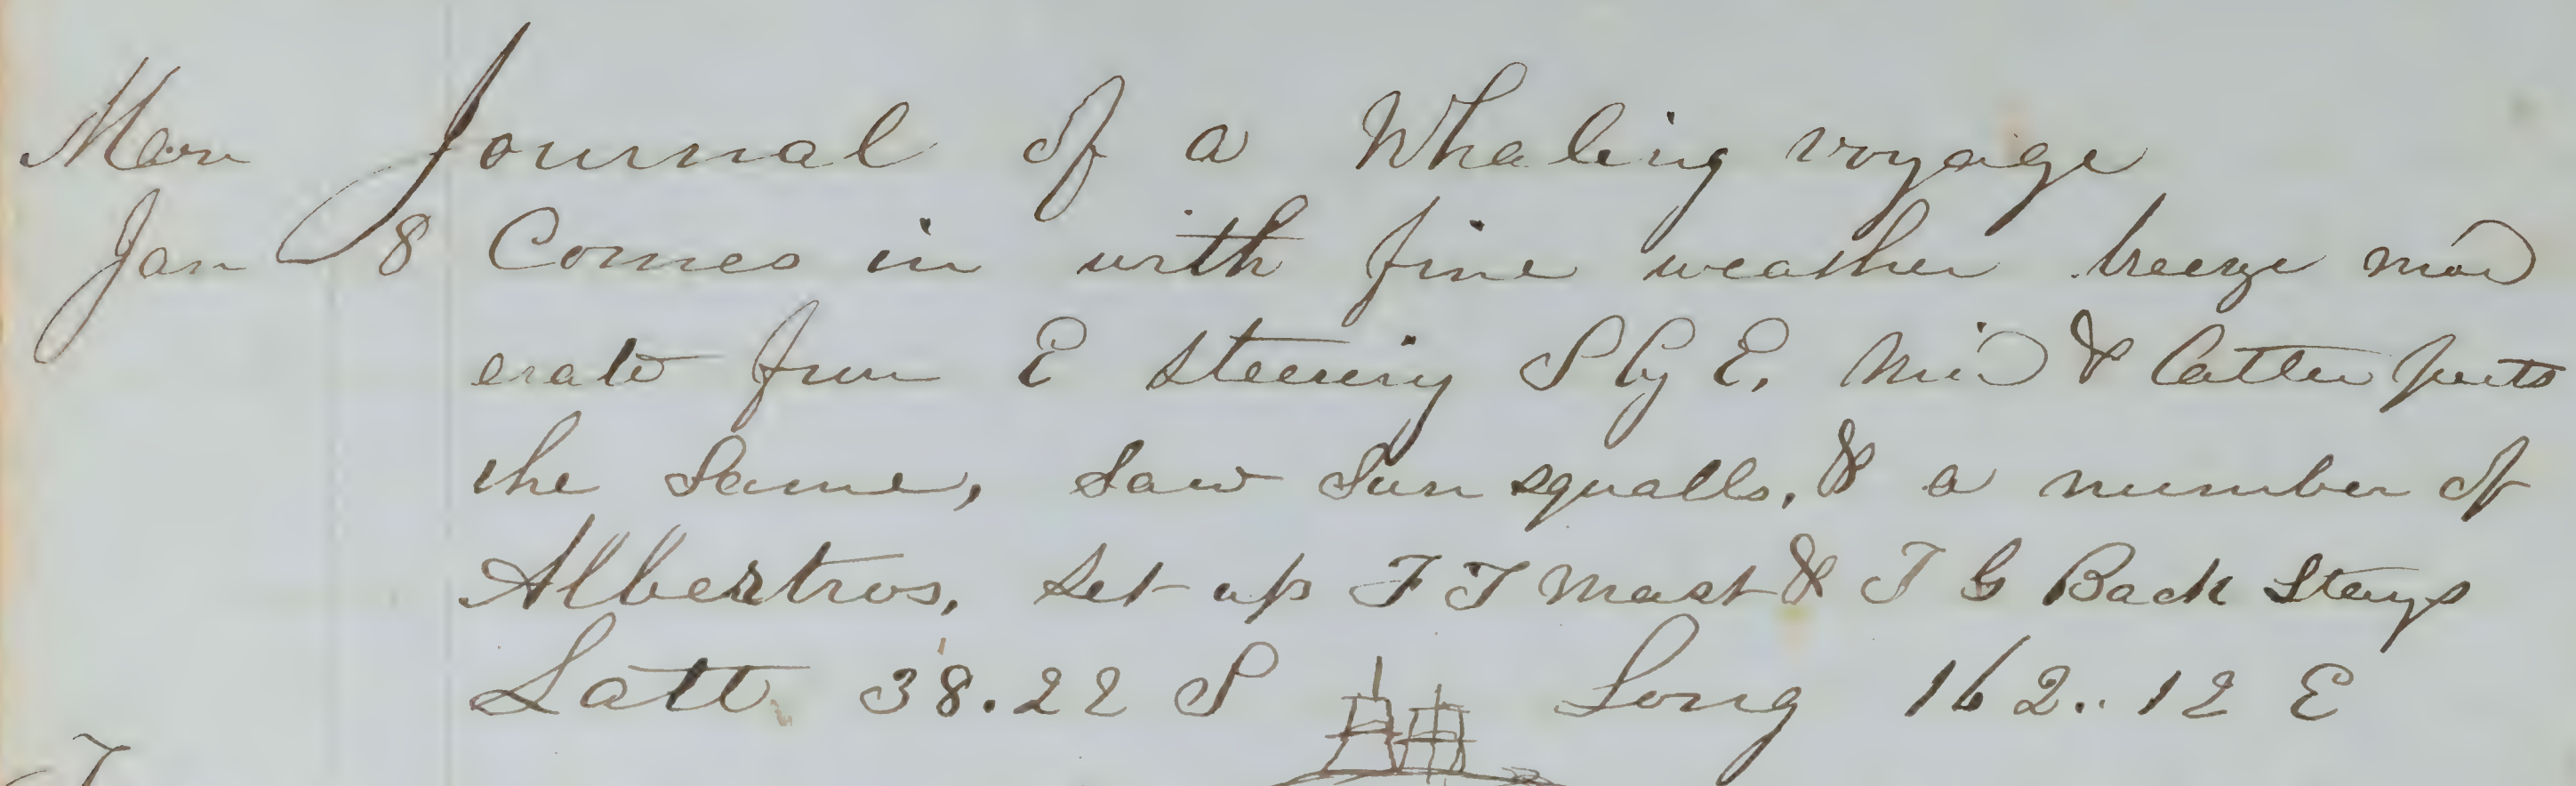 Mon Journal of a Whaling voyage
Jan 8 Comes in with fine weather breeze mod
erate from E steering S by E. Mid & latter parts
the Same, Saw Sun squalls, & a number of
Albertros, Set up F T Mast & T G Back Stays
Latt 38.22 S Long 162..12 E